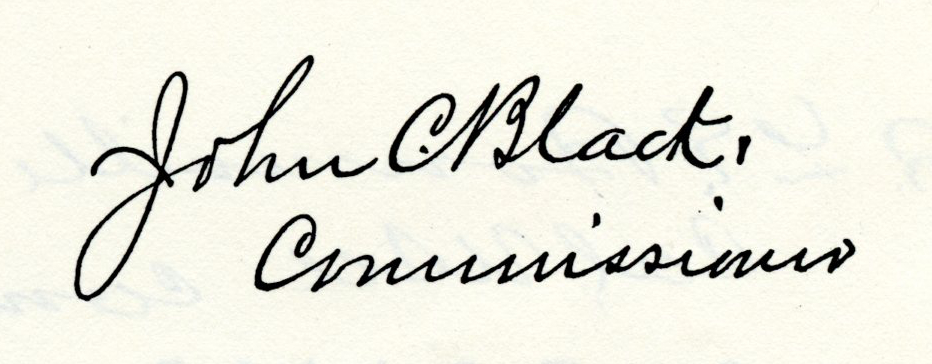 John C. Black,
Commissioner